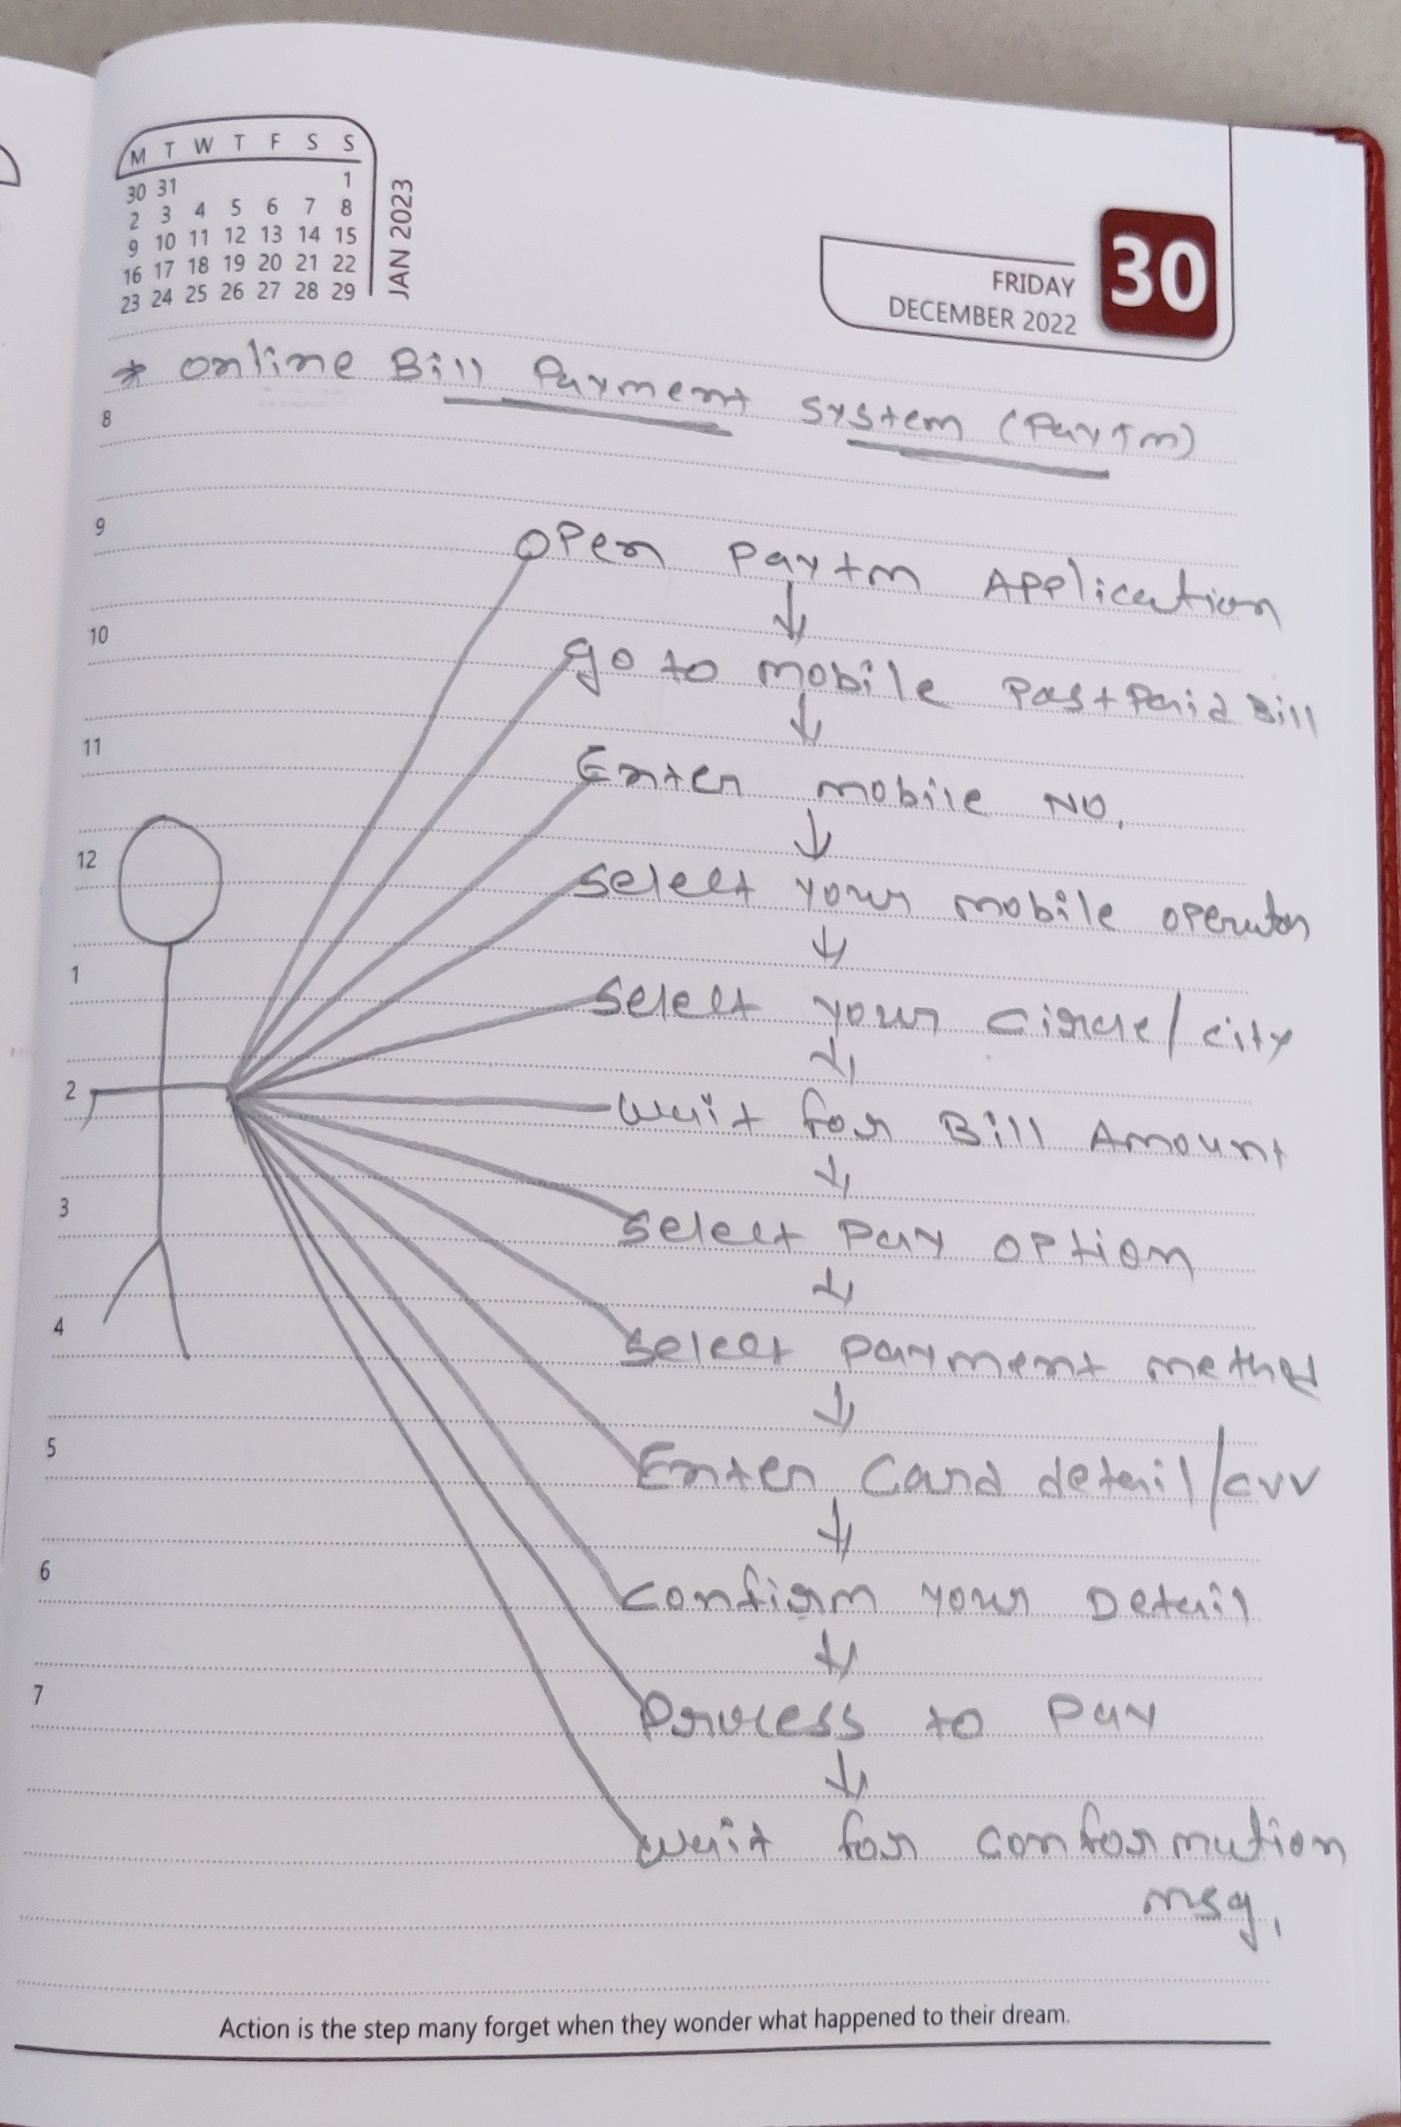 M T W T F S S
30 31 1
2 3 4 5 6 7 8
9 10 11 12 13 14 15
16 17 18 19 20 21 22
23 24 25 26 27 28 29
JAN 2023
FRIDAY
DECEMBER 2022
30
* Online Bill Payment System (Paytm)
8
9
Open Paytm Application
10
go to mobile Postpaid Bill
11
Enter mobile No.
12
Select your mobile operator
1
Select your circle/city
2
Wait for Bill Amount
3
Select Pay option
4
Select payment method
5
Enter Card detail/cvv
6
Confirm your Detail
7
Process to Pay
Wait for conformation
msg.
Action is the step many forget when they wonder what happened to their dream.